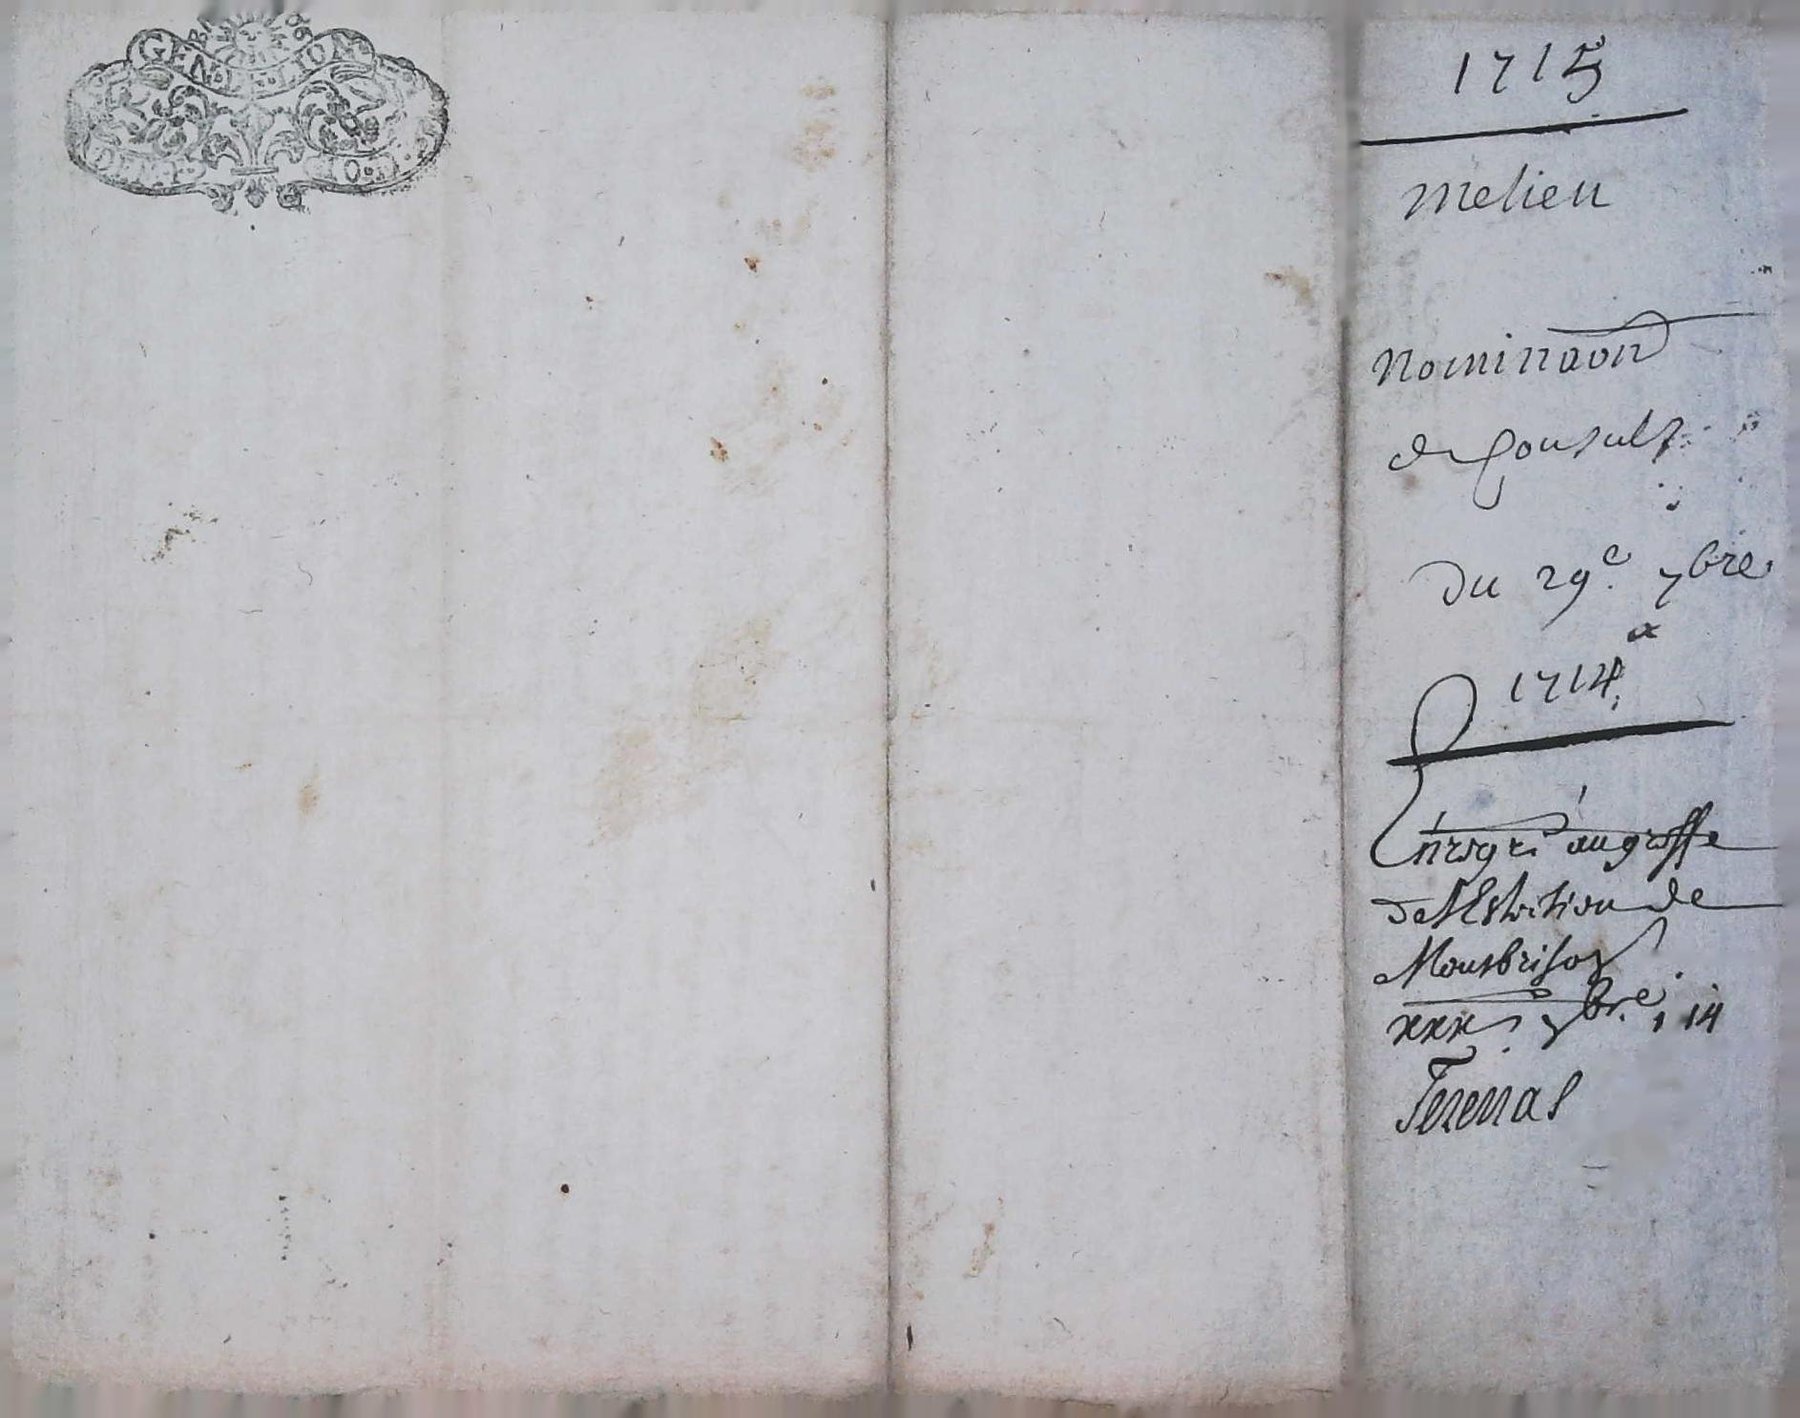 GEN DE LION
1715
melieu
Nominaon
de Consulz
du 29e. 7bre
1714
Enregré au greffe
de l'Eslection de
Montbrison
xxx 7bre 1714